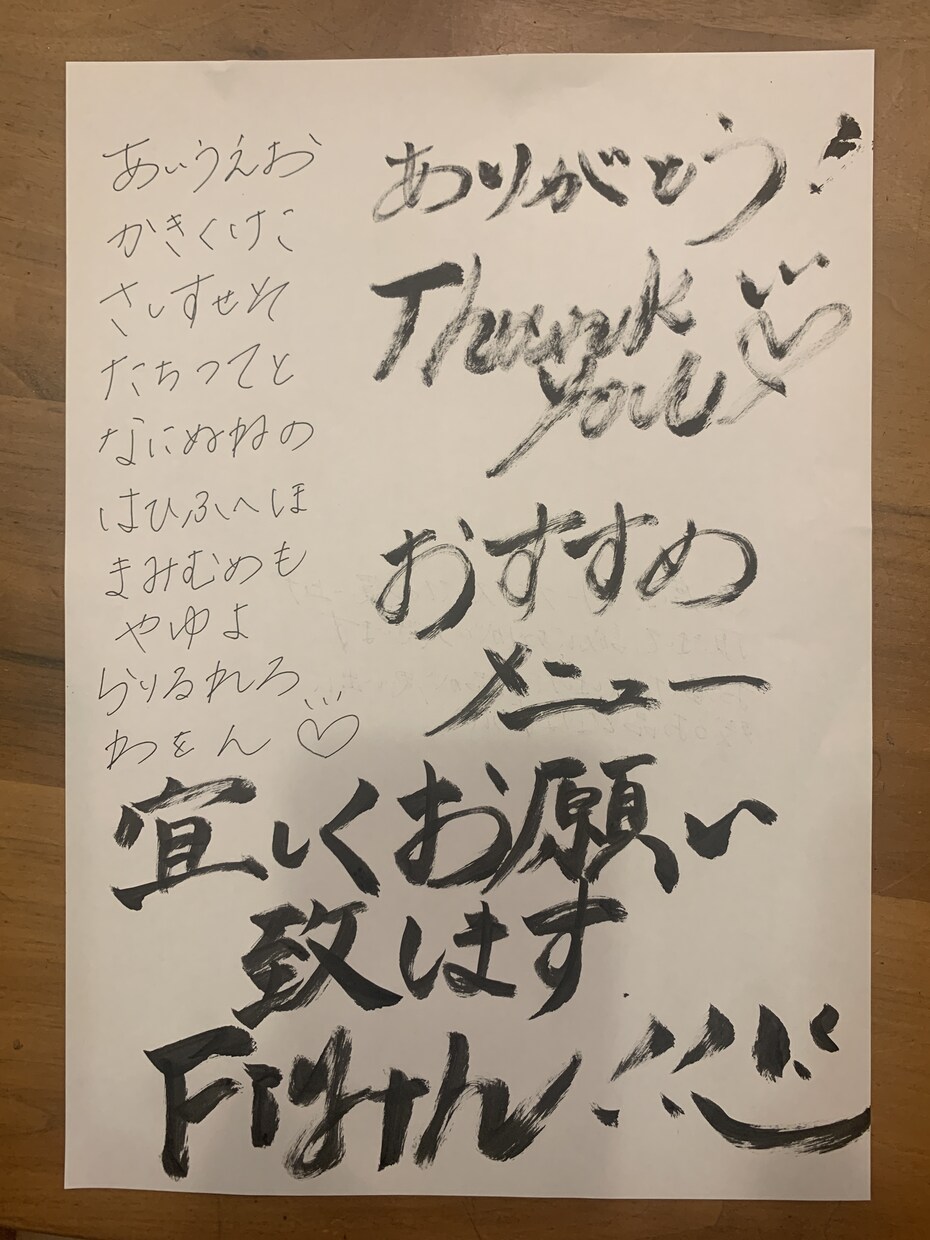 あいうえお
かきくけこ
さしすせそ
たちつてと
なにぬねの
はひふへほ
まみむめも
やゆよ
らりるれろ
わをん♡
ありがとう!
Thank
you♡
おすすめ
メニュー
宜しくお願い
致します